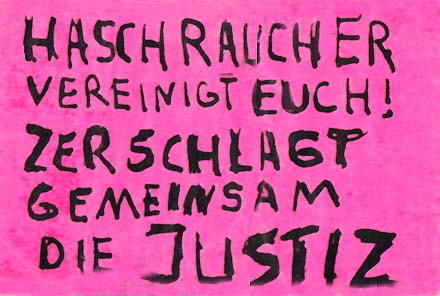 HASCHRAUCHER
VEREINIGT EUCH!
ZERSCHLAGT
GEMEINSAM
DIE JUSTIZ